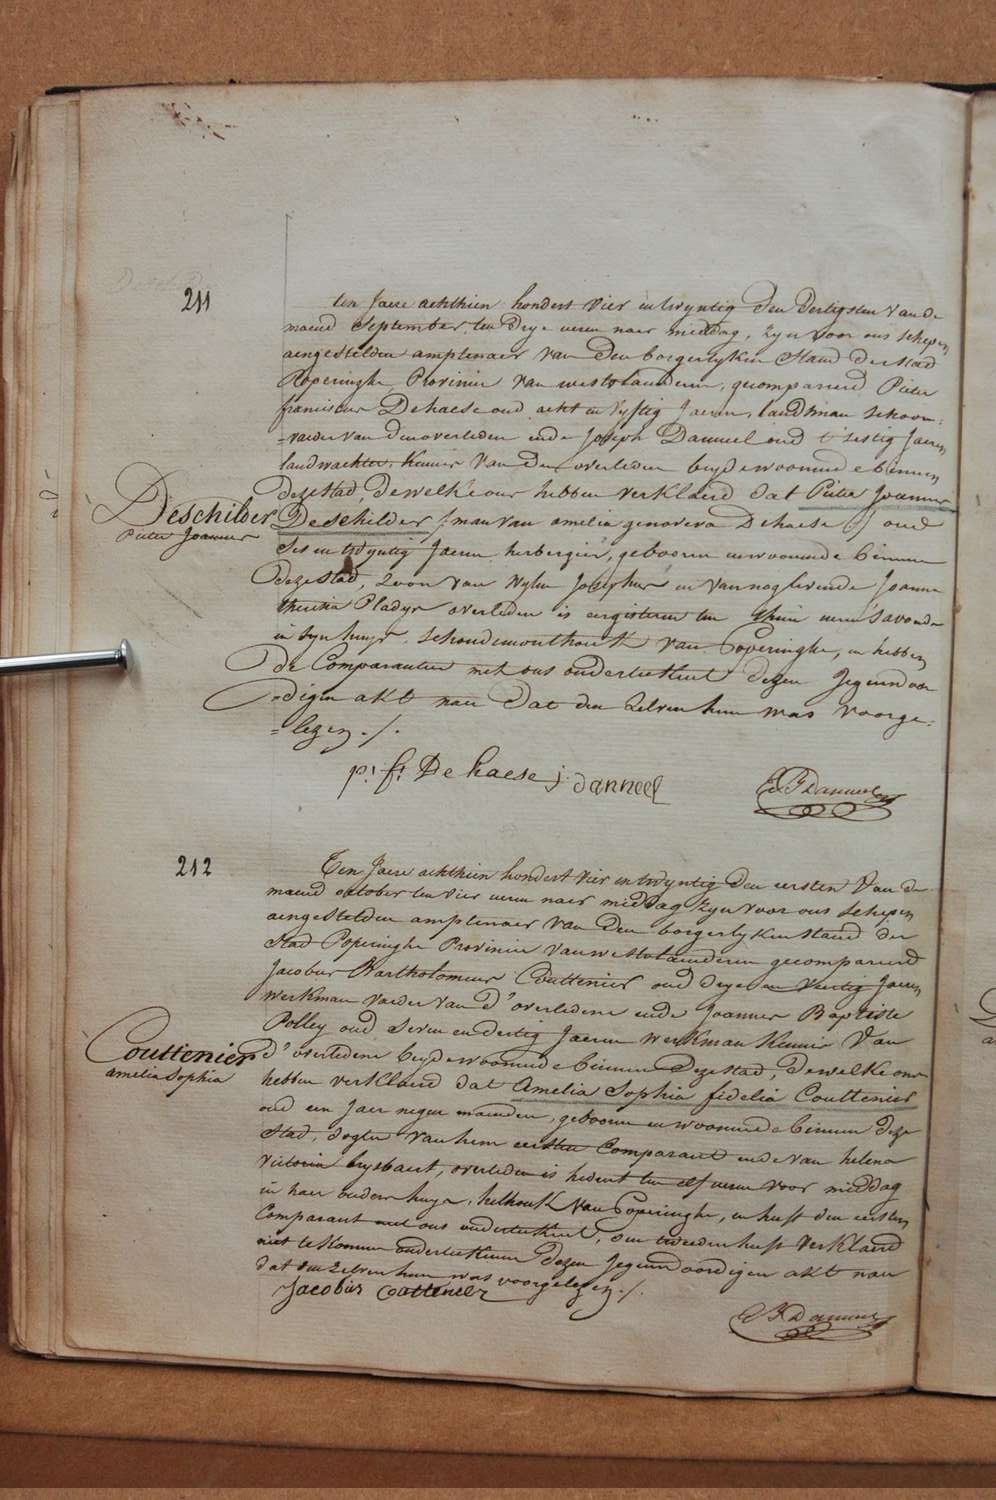 211
ten Jaere achthien hondert vier en twyntig den dertigsten van de
maend September, ten drye uren naer middag, zyn voor ons schepen
aengestelden amptenaer van den borgerlyken stand der stad
Poperinghe Provincie van westvlaenderen, gecompareerd Pieter
franciscus Dehaese oud acht en vyftig Jaeren, landsman schoon-
=vaeder van den overleden ende Joseph Danneel oud t'sestig Jaeren
landwachter, Kennis van den overleden beyde woonende binnen
deze stad, dewelke ons hebben verklaerd dat Pieter Joannes
Deschilder
Pieter Joannes
Deschilder (man van amelia genoveva Dehaese) oud
ses en twyntig Jaeren herbergier, gebooren en woonende binnen
deze stad, zoon van wylen Josephus en van nog levende Joanna
theresia Pladys overleden is eergisteren ten thien uren s'avonds
in syn huys, schoudemonthoek van Poperinghe, en hebben
de Comparanten met ons onderteekent dezen Jegenwoor
=digen akt naer dat den zelven hun was voorge-
=lezen ./.
p: f: De haese j: danneel
212
Ten Jaere achthien hondert vier en twyntig den eersten Van de
maend october ten vier uren naer middag zyn voor ons schepen
aengestelden amptenaer van den borgerlyken stand der
stad Poperinghe Provincie van westvlaenderen gecompareerd
Jacobus Bartholomeus Couttenier oud drye en veertig Jaeren
werkman vaeder van d'overledene ende Joannes Baptiste
Polley oud seven en dertig Jaeren werkman Kennis Van
Couttenier
amelia Sophia
d'overledene beyde woonende binnen deze stad, dewelke ons
hebben verklaerd dat Amelia Sophia fidelia Couttenier
oud een Jaer negen maenden, gebooren en woonende binnen deze
stad, dogter van hem eersten Comparant ende van helena
victoria brysbaert, overleden is hedent ten elf uren voor middag
in haer ouders huys, helhoek van Poperinghe, en heeft den eersten
Comparant met ons onderteekent, den tweeden heeft verklaerd
niet te konnen onderteekenen dezen Jegenwoordigen akt naer
dat den zelven hun was voorgelezen ./.
Jacobus Couttenier